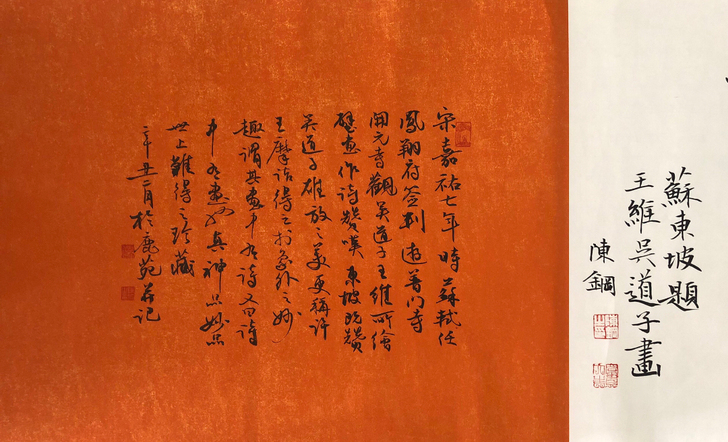 蘇東坡題
王維吳道子畫
陳鋼
宋嘉祐七年時蘇軾任
鳳翔府簽判遊普門寺
開元寺觀吳道子王維所繪
壁畫作詩贊嘆東坡既贊
吳道子雄放之美更稱許
王摩詰得之於象外之妙
趣謂其畫中有詩又曰詩
中有畫真神品妙品
世上難得之珍藏
辛丑二月於鹿苑并記